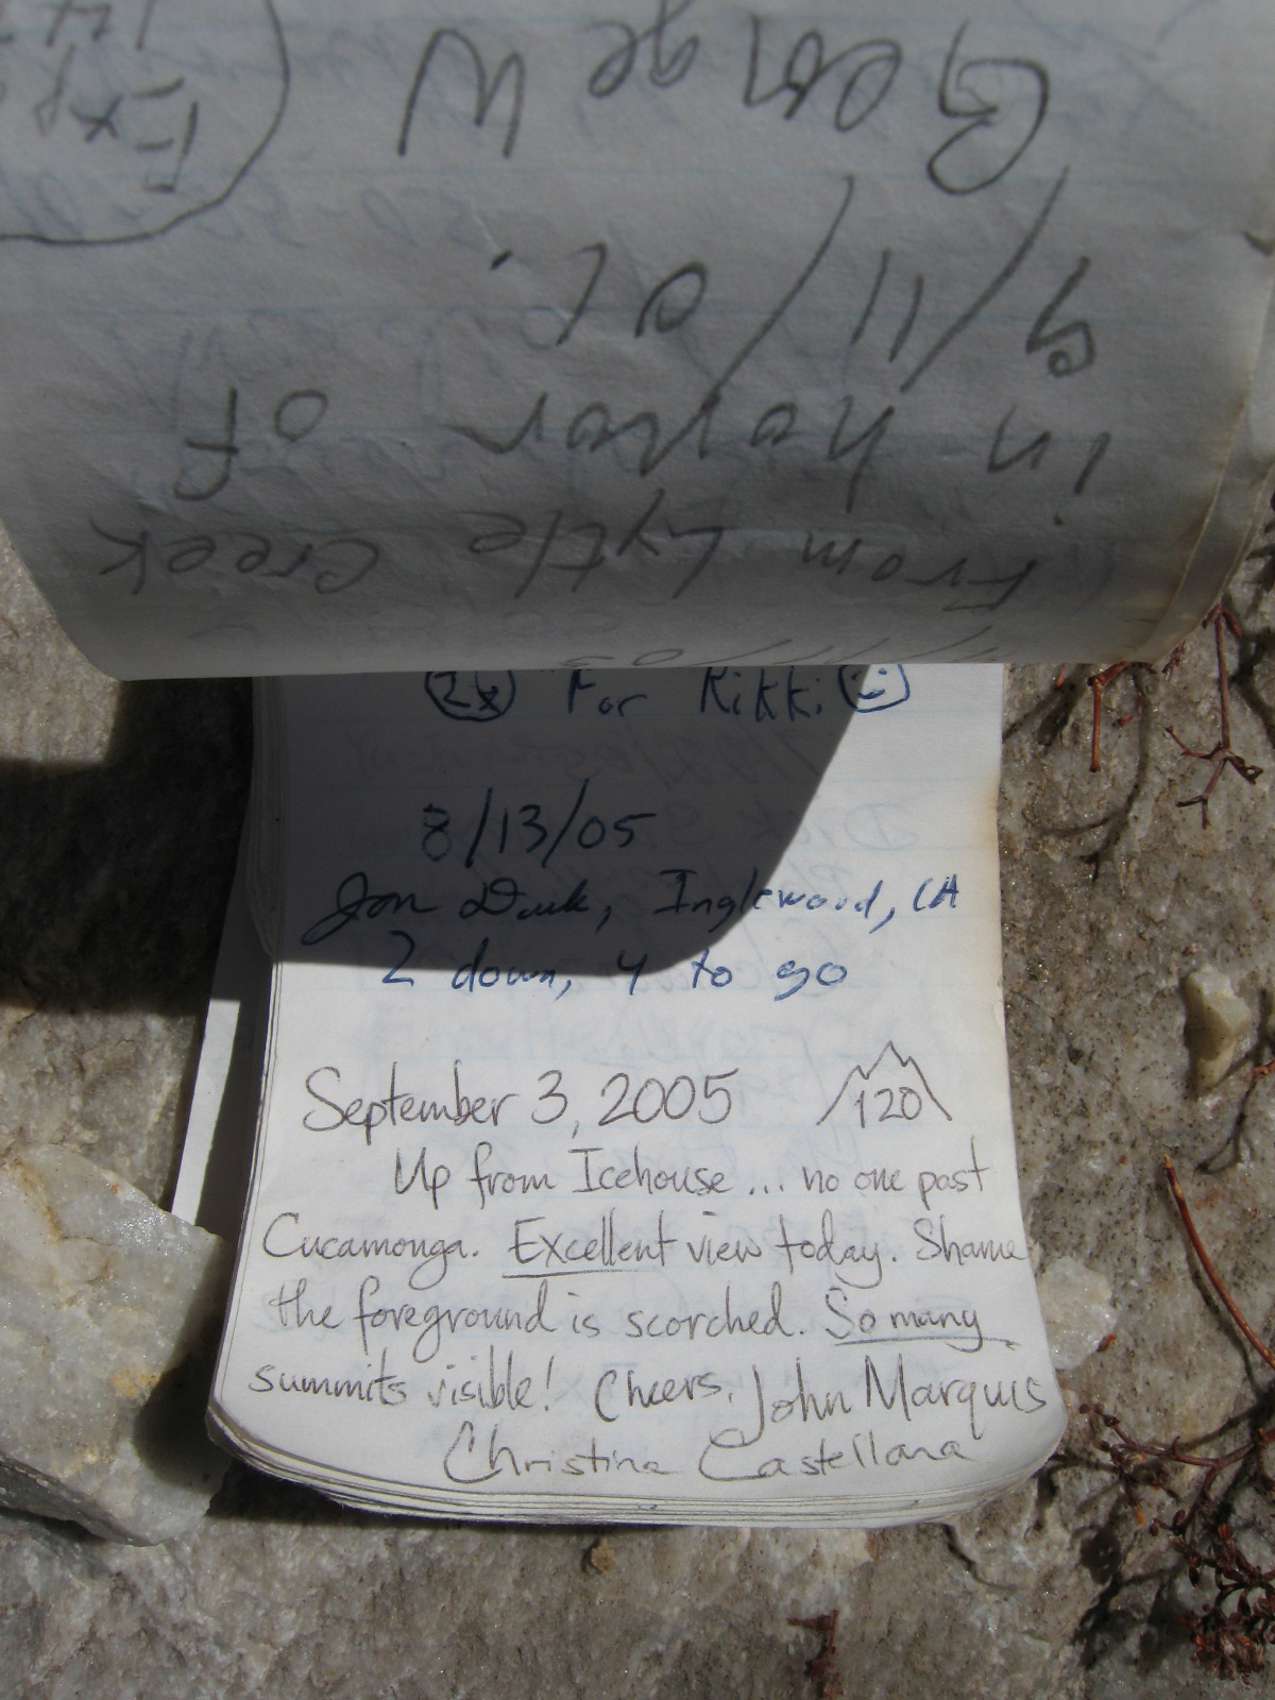 From Lytle Creek
in honor of
9/11/01.
George W
2x For Rikki
8/13/05
Jon Inglewood, CA
2 down, 4 to go
September 3, 2005 120
Up from Icehouse... no one past
Cucamonga. Excellent view today. Shame
the foreground is scorched. So many
summits visible! Cheers, John Marquis
Christina Castellana